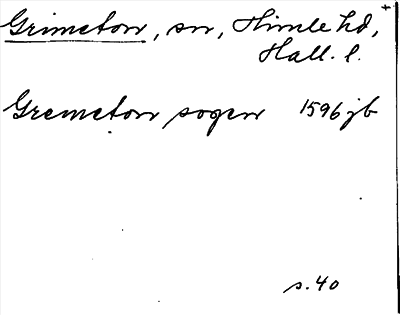 Grimeton, sn, Himle hd,
Hall. l.
Gremeton sogen 1596 jb
s. 40